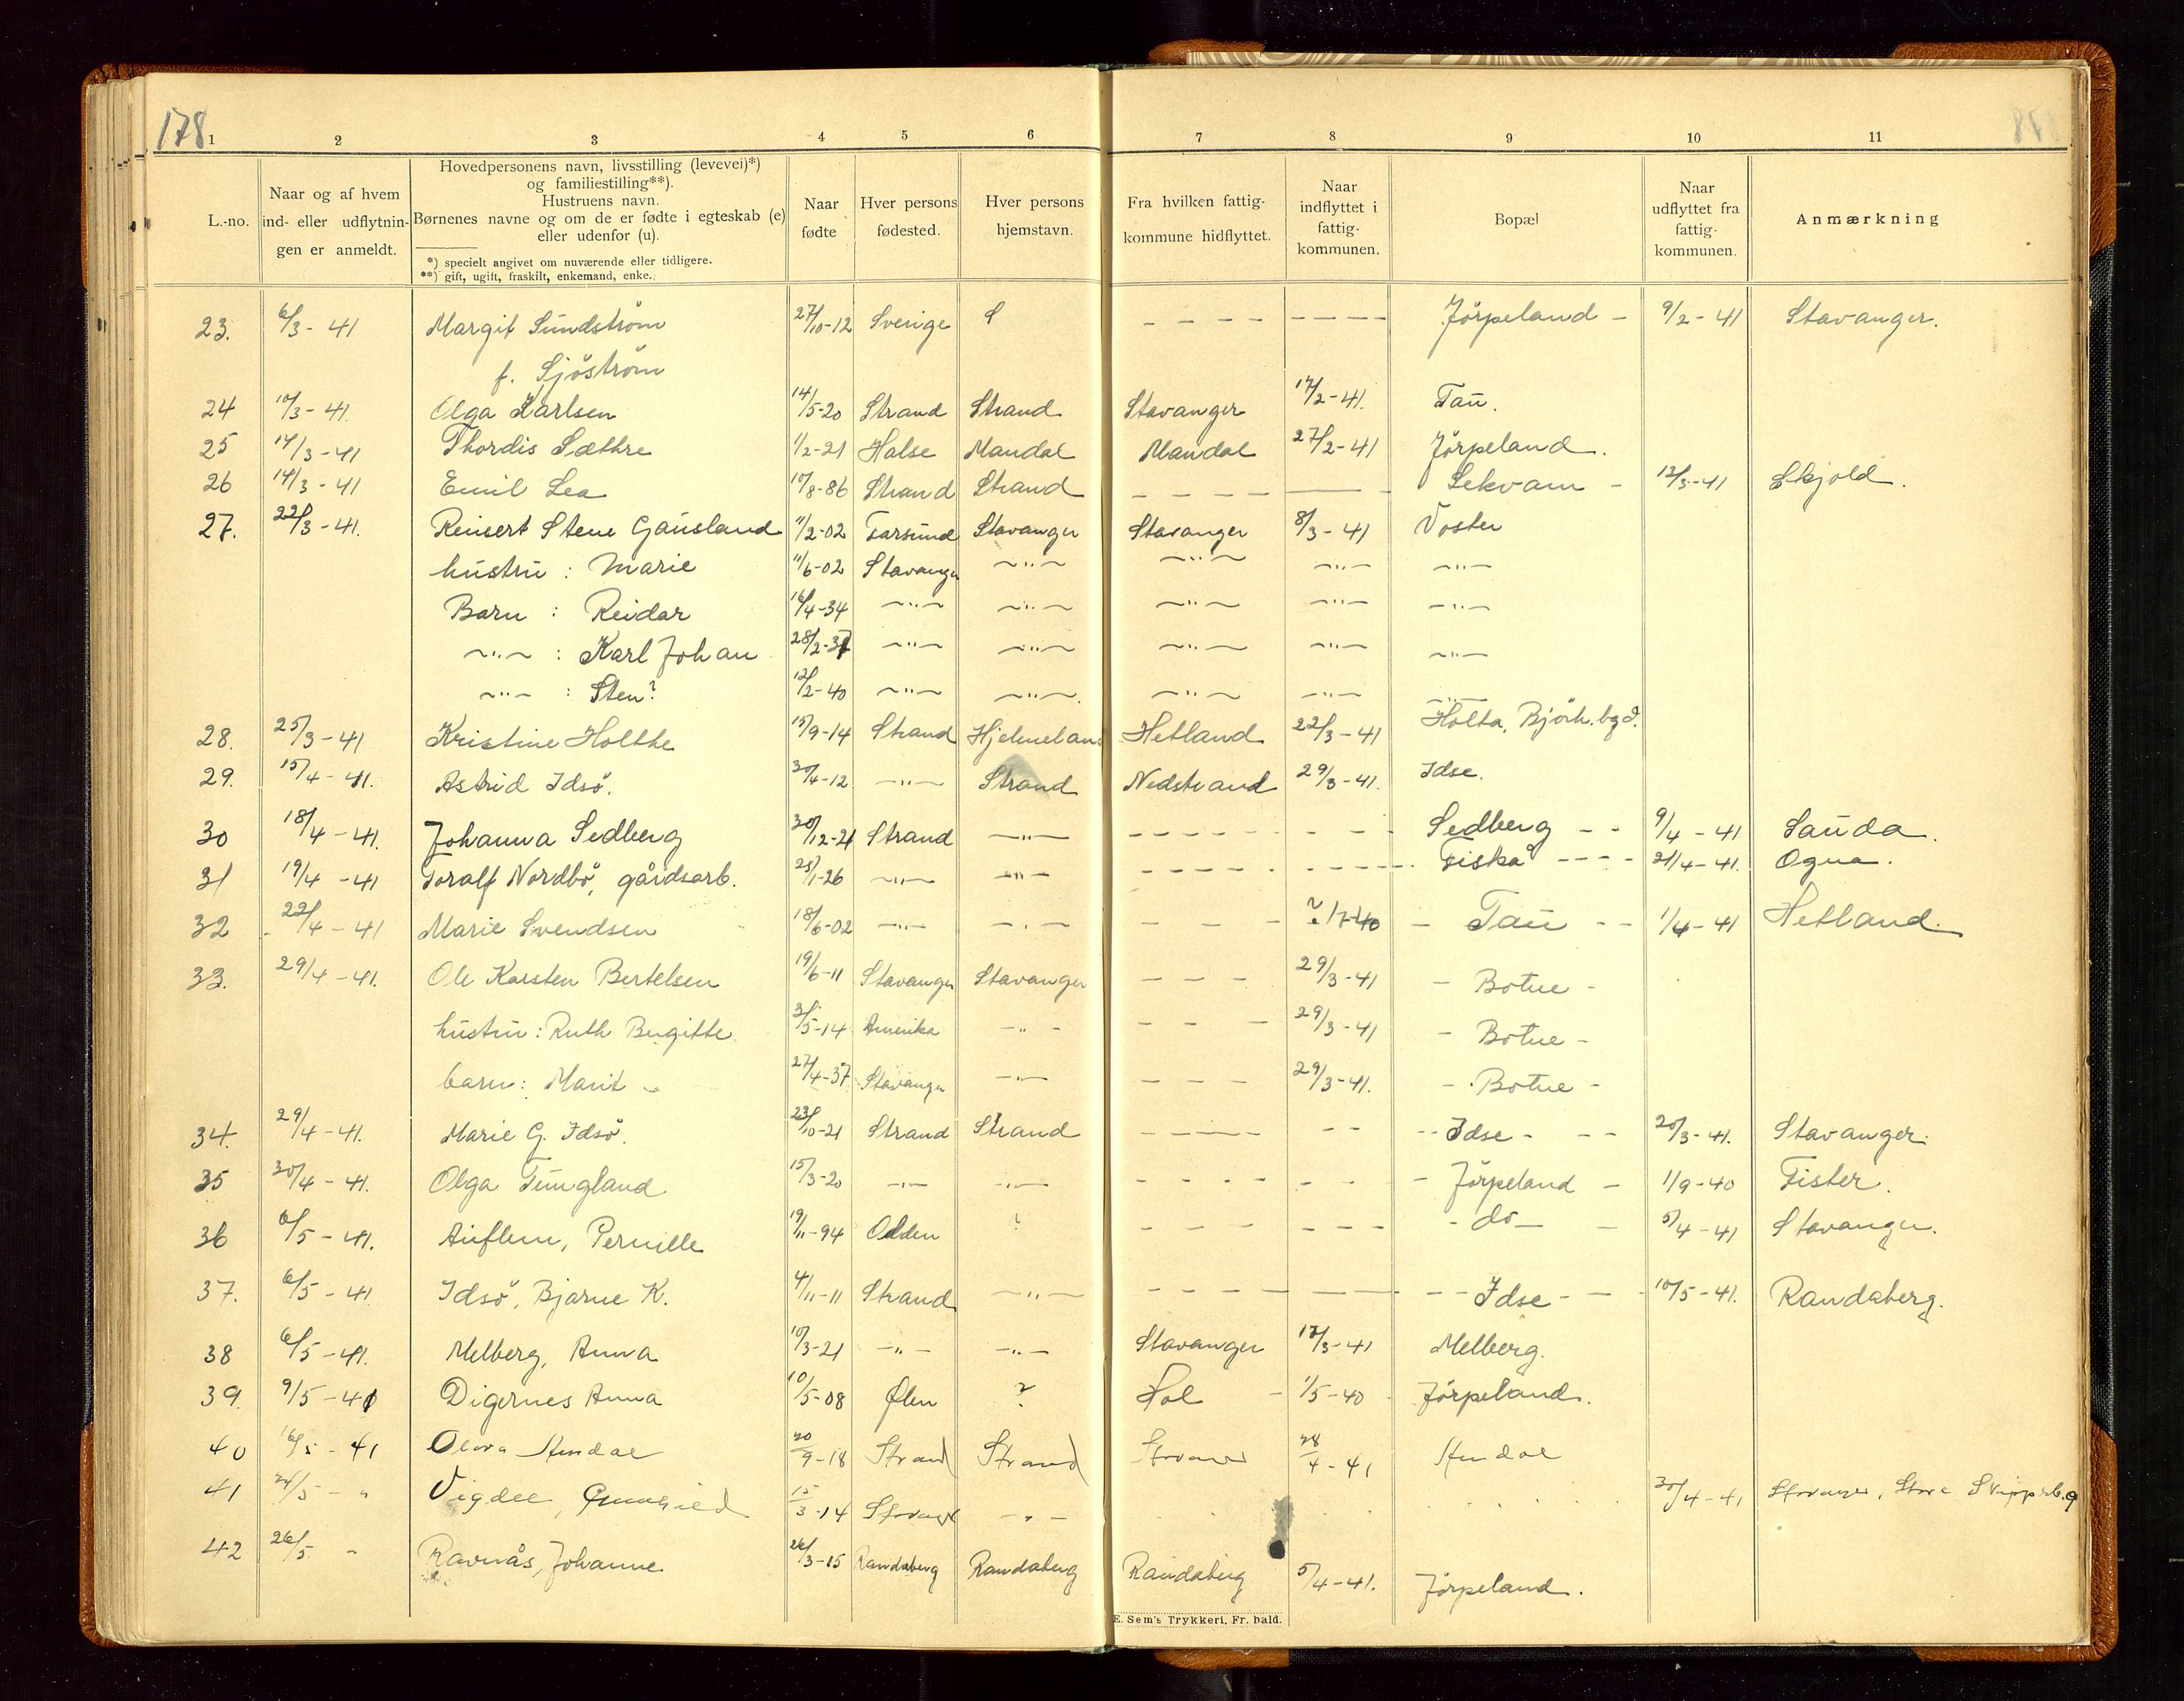 178
1 2 3 4 5 6 7 8 9 10 11
L.-no.
Naar og af hvem ind- eller udflytningen er anmeldt.
Hovedpersonens navn, livsstilling (levevei)*)
og familiestilling**).
Hustruens navn.
Børnenes navne og om de er fødte i egteskab (e)
eller udenfor (u).
*) specielt angivet om nuværende eller tidligere.
**) gift, ugift, fraskilt, enkemand, enke.
Naar fødte
Hver persons fødested.
Hver persons hjemstavn.
Fra hvilken fattigkommune hidflyttet.
Naar indflyttet i fattigkommunen.
Bopæl
Naar udflyttet fra fattigkommunen.
Anmærkning
23. 6/3-41 Margit Sundström 27/10-12 Sverige S - - - - - - - - Jörpeland - 9/2-41 Stavanger.
f. Sjöström
24 10/3-41. Olga Karlsen 14/5-20 Strand Strand Stavanger 17/2-41. Tau.
25 14/3-41 Thordis Sæthre 1/2-21 Halse Mandal Mandal 27/2-41 Jörpeland.
26 14/3-41 Emil Lea 10/8-86 Strand Strand - - - - - Lekvam - 12/3-41 Skjold.
27. 22/3-41. Reinert Stene Gausland 11/2-02 Farsund Stavanger Stavanger 8/3-41 Voster
hustru : Marie 11/6-02 Stavanger -"- -"- -"- -"-
Barn : Reidar 16/4-34 -"- -"- -"- -"- -"-
-"- : Karl Johan 28/2-37 -"- -"- -"- -"- -"-
-"- : Sten? 12/2-40 -"- -"- -"- -"- -"-
28. 25/3-41 Kristine Holthe 15/9-14 Strand Hjelmeland Hetland 22/3-41 Holta, Björh.bgd.
29. 15/4-41. Astrid Idsö. 30/4-12 -"- Strand Nedstrand 29/3-41. Idse.
30 18/4-41. Johanna Sedberg 30/12-21 Strand -"- - - - - - - Sedberg - - 9/4-41 Sauda.
31 19/4-41 Toralf Nordbö, gårdsarb. 25/1-26 -"- -"- - - - - - - Fiskå - - - - 21/4-41. Ogna.
32 22/4-41 Marie Svendsen 18/6-02 -"- -"- - - - ? 17-40 - Tau - - 1/4-41 Hetland.
33. 29/4-41. Ole Karsten Bertelsen 19/6-11 Stavanger Stavanger - - - 29/3-41 - Botne -
hustru : Ruth Birgitte 31/5-14 Amerika -"- - - - 29/3-41 - Botne -
barn : Marit -"- 27/4-37 Stavanger -"- - - - 29/3-41. - Botne -
34. 29/4-41. Marie G. Idsö. 23/10-21 Strand Strand - - - - - - - Idse - - - 20/3-41. Stavanger.
35 30/4-41. Olga Tungland 15/3-20 -"- -"- - - - - - - - - Jörpeland - 1/9-40 Fister.
36 6/5-41. Auflem, Pernille 19/11-94 Odden ? - - - - - - - do - - 5/4-41 Stavanger.
37. 6/5-41 Idsö, Bjarne K. 4/11-11 Strand -"- - - - - - - - Idse - - 10/5-41. Randaberg.
38 6/5-41. Melberg, Anna 10/3-21 -"- -"- Stavanger 17/3-41 Melberg.
39. 9/5-41 Digernes Anna 10/5-08 Ølen ? Hol - 1/5-40 Jörpeland.
40 16/5-41 20/9-18 Strand Strand 28/4-41
41 24/5-" 15/3-14 -"- 30/4-41
42 26/5. " Ravnås, Johanne 26/3-15 Randaberg Randaberg Randaberg 5/4-41. Jörpeland.
E. Sem's Trykkeri, Fr. hald.